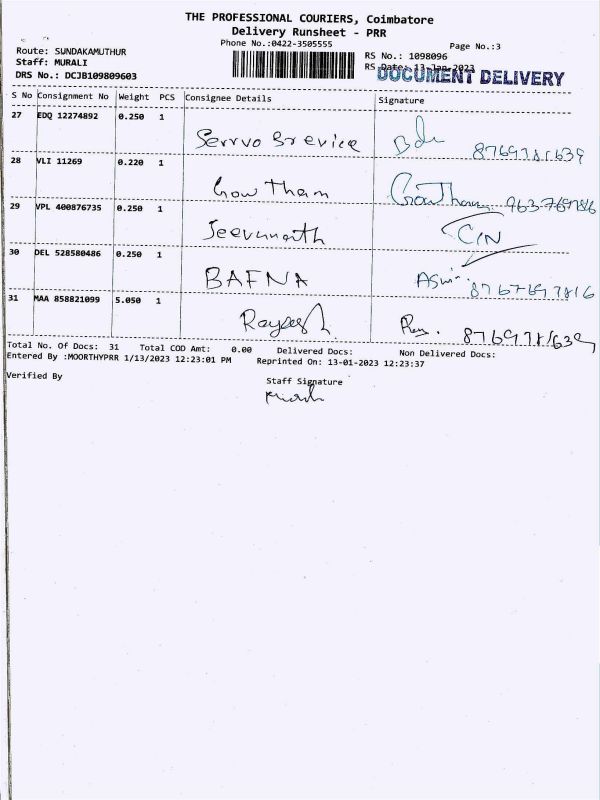 THE PROFESSIONAL COURIERS, Coimbatore
Delivery Runsheet - PRR
Phone No.:0422-3505555
Page No.:3
Route: SUNDAKAMUTHUR
Staff: MURALI
DRS No.: DCJB109809603
RS No.: 1098096
RS Date: 13-Jan-2023
DOCUMENT DELIVERY
S No Consignment No Weight PCS Consignee Details Signature
27 EDQ 12274892 0.250 1
Serrvo Srevice 8769781639
28 VLI 11269 0.220 1
Gowtham Gowtham
29 VPL 400876735 0.250 1
Jeevananth
30 DEL 528580486 0.250 1
BAFNA 8767697816
31 MAA 858821099 5.050 1
8769781639
Total No. Of Docs: 31 Total COD Amt: 0.00 Delivered Docs: Non Delivered Docs:
Entered By :MOORTHYPRR 1/13/2023 12:23:01 PM Reprinted On: 13-01-2023 12:23:37
Verified By
Staff Signature